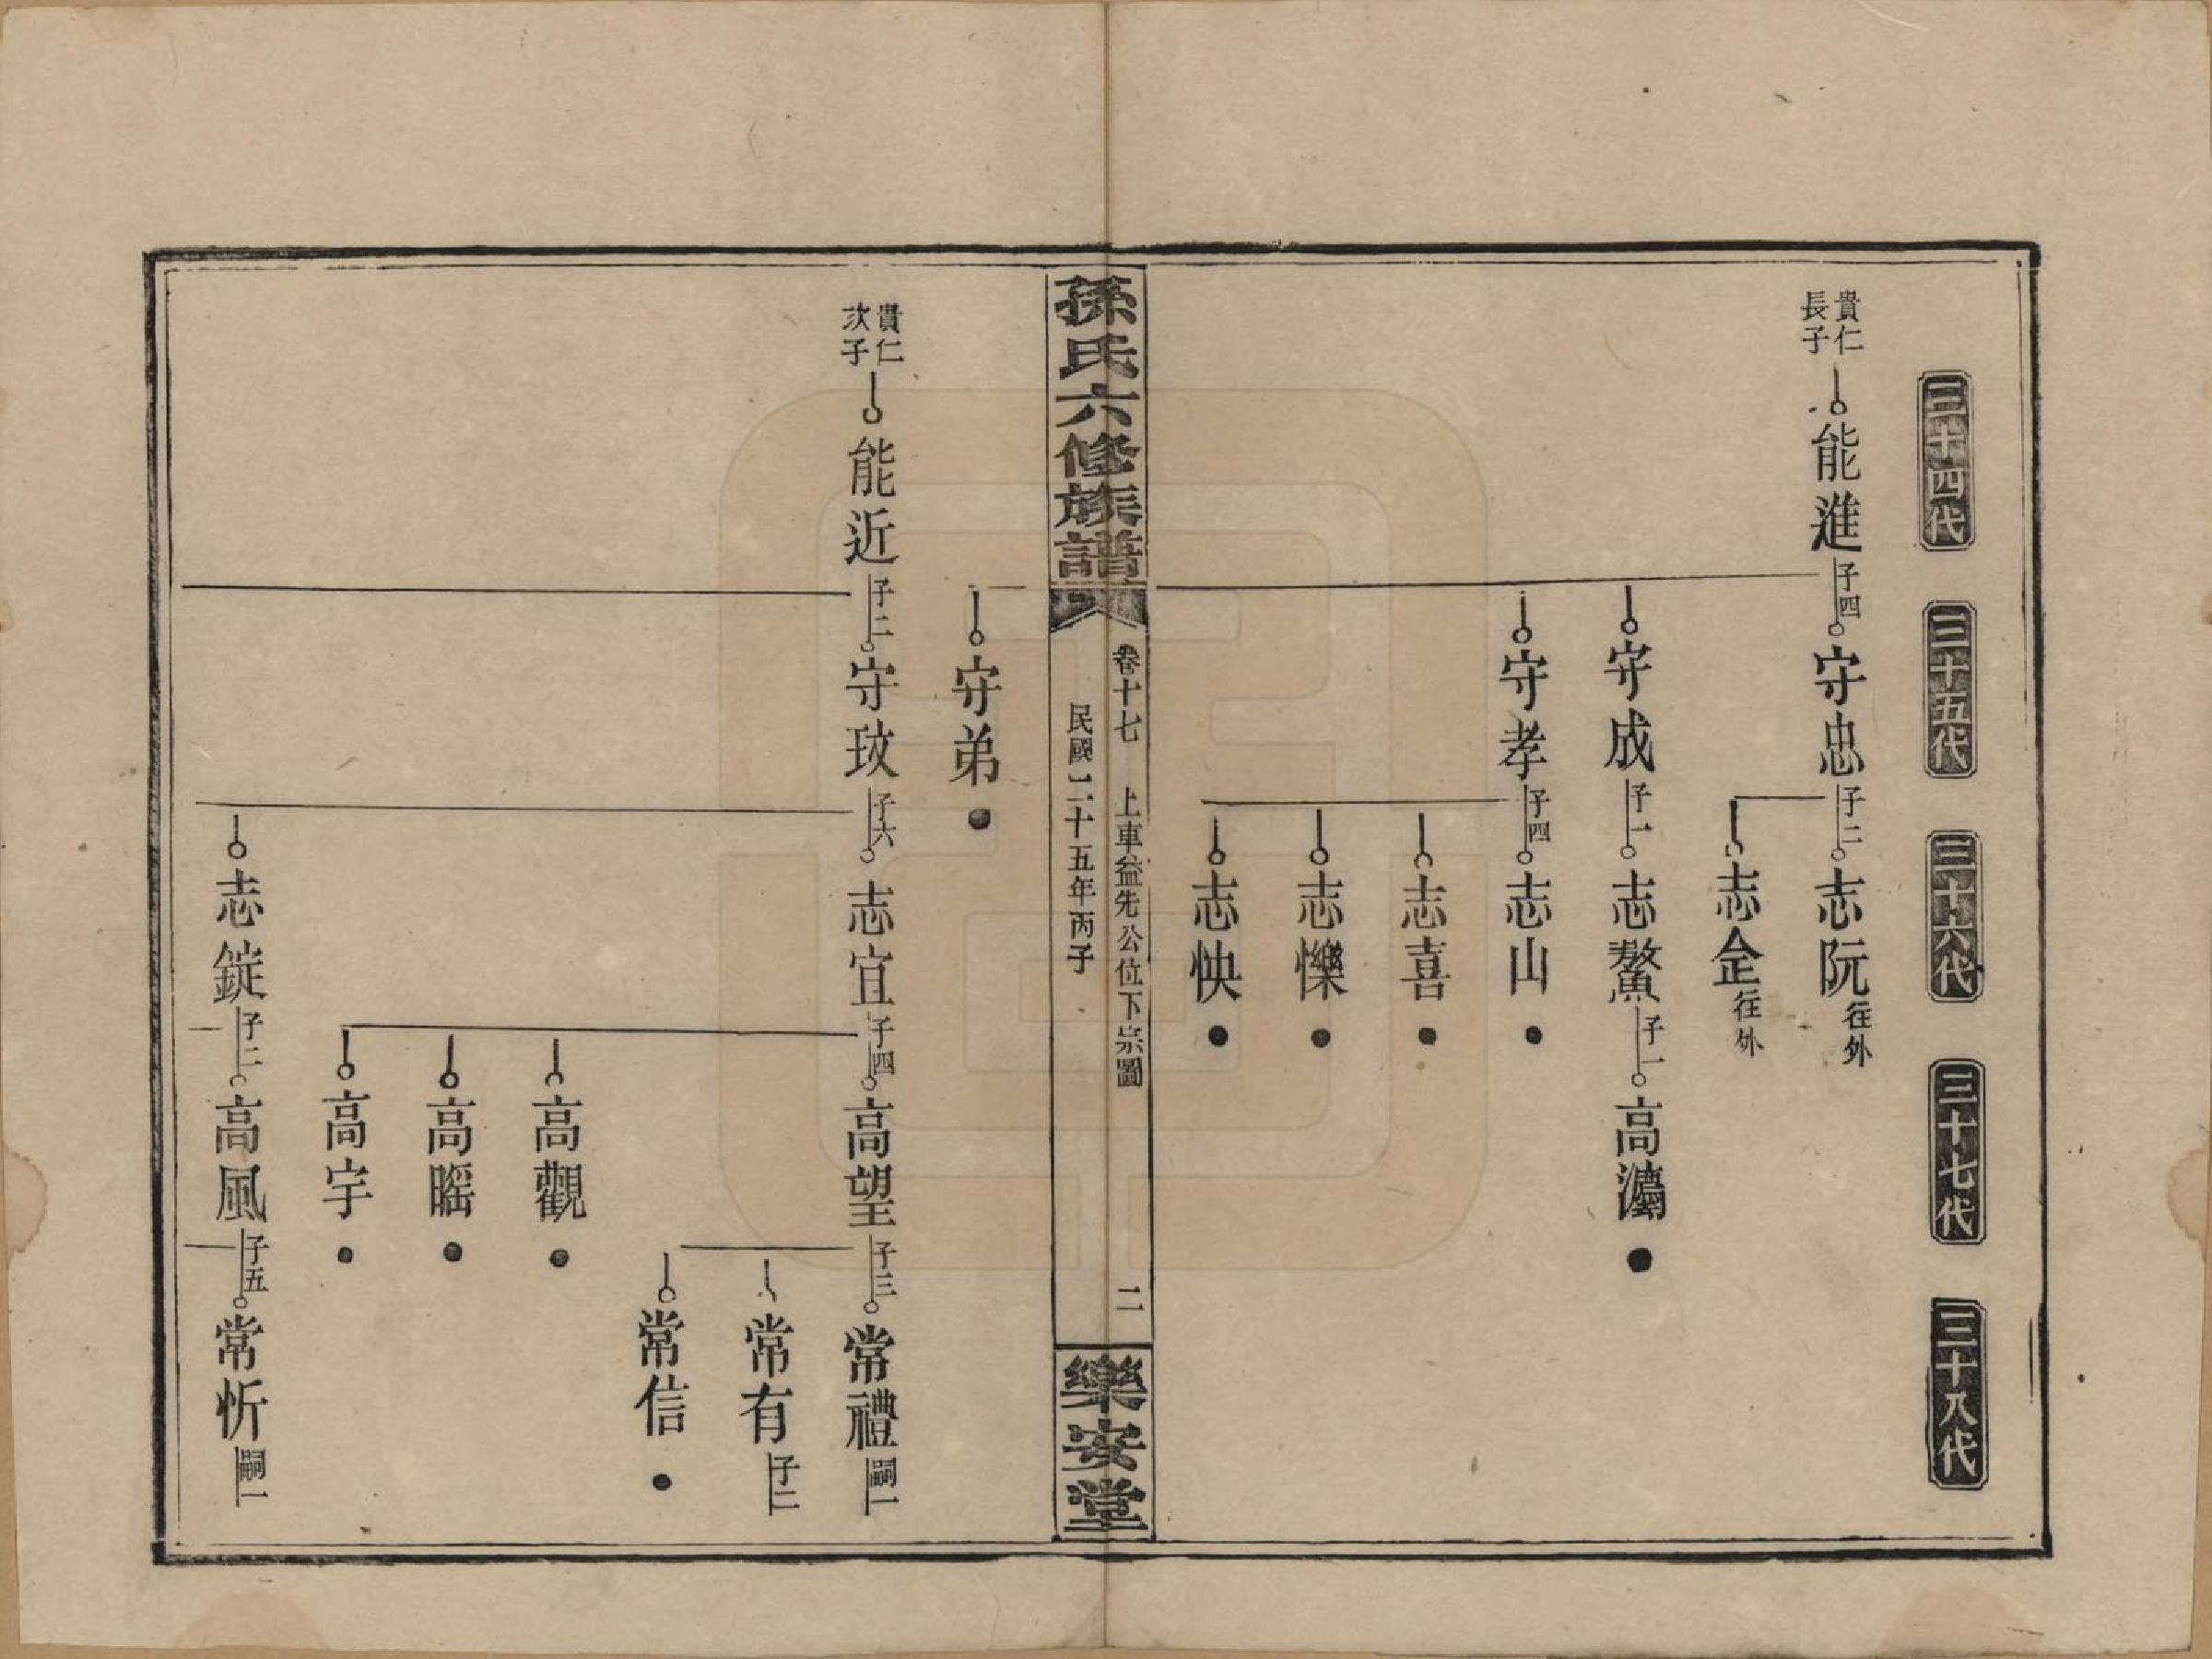 三十四代
三十五代
三十六代
三十七代
三十八代
貴仁
長子
能進
子四
守忠
子二
志阮
往外
志企
往外
守成
子一
志鰲
子一
高濤
守孝
子四
志山
志喜
志懌
志怏
孫氏六修族譜
卷十七 上車益先公位下崇圖 二
民國二十五年丙子
樂安堂
守弟
貴仁
次子
能近
子二
守玫
子六
志宜
子四
高望
子三
常禮
嗣一
常有
子二
常信
高觀
高曘
高宇
志錠
子二
高風
子五
常忻
嗣一